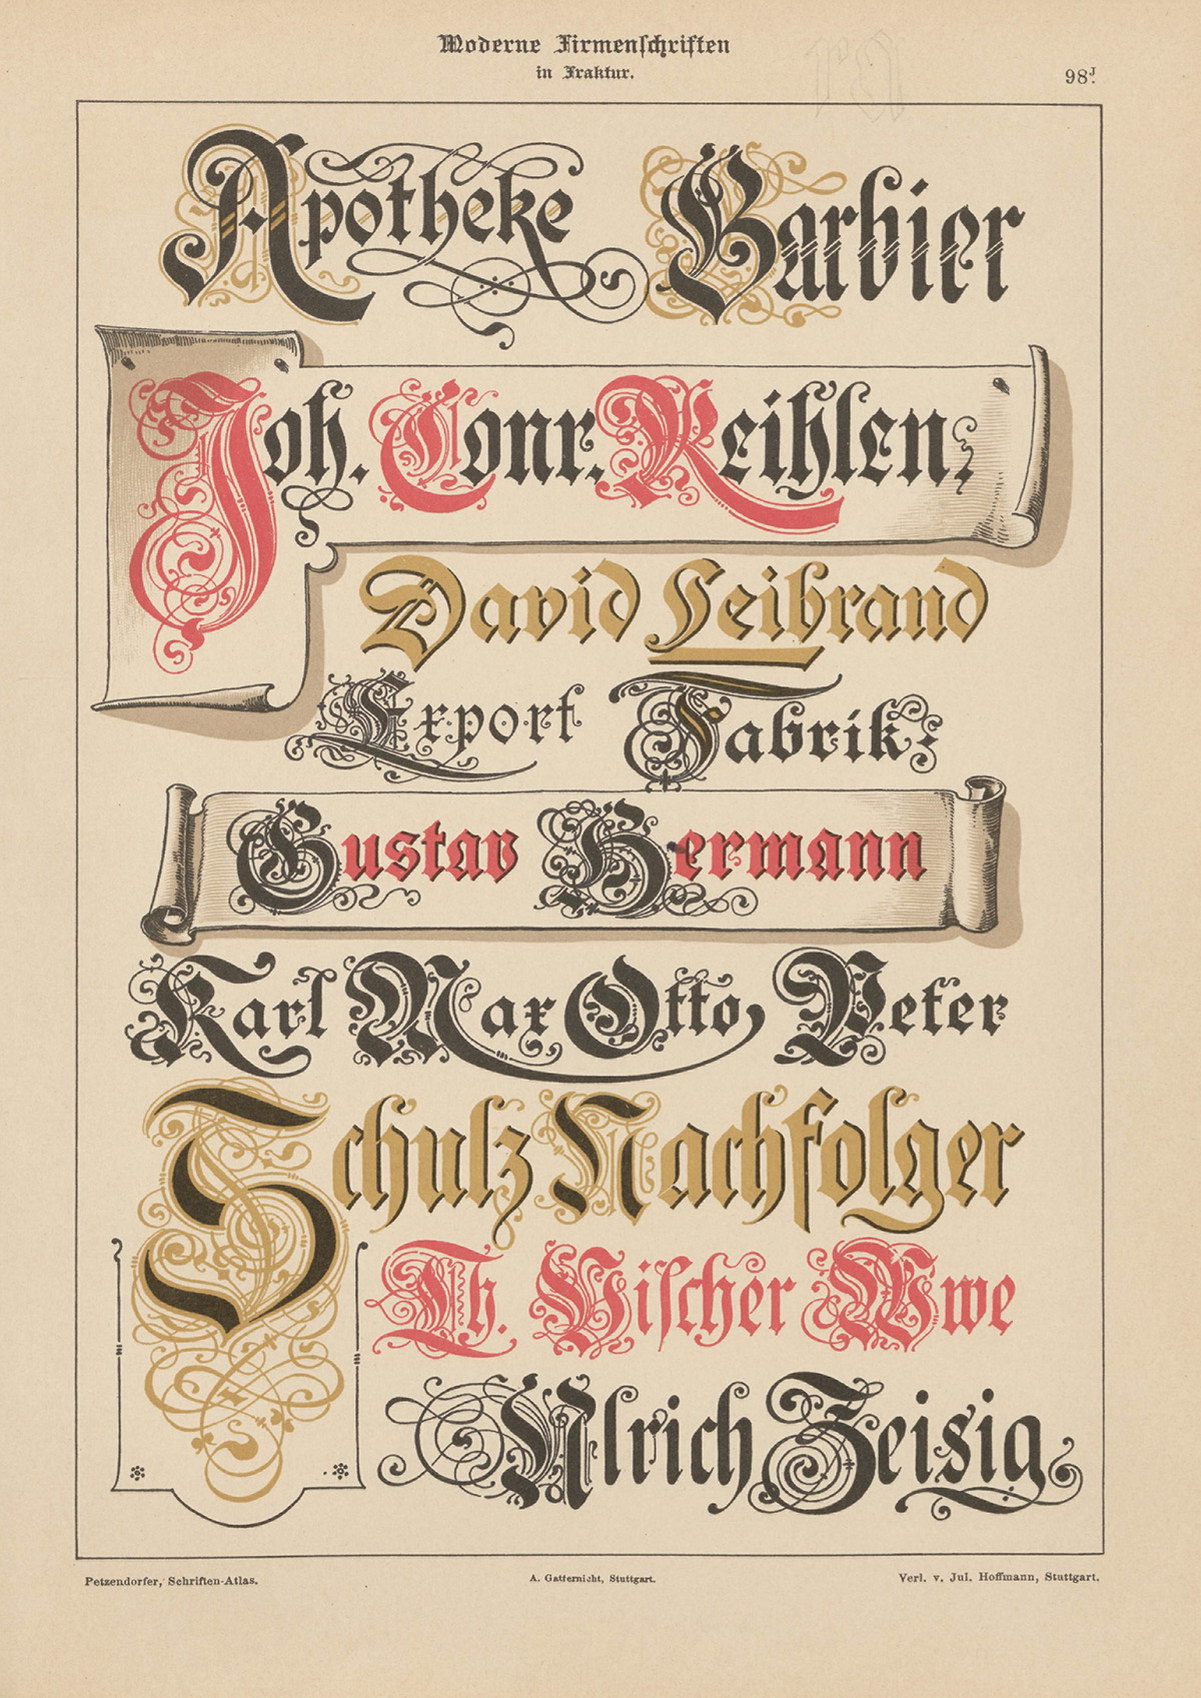 Moderne Firmenschriften
in Fraktur.
98J.
Apotheke Barbier
Joh. Conr. Reihlen.
David Leibrand
Export Fabrik
Gustav Hermann
Karl Max Otto, Peter
Schulz Nachfolger
Th. Vischer Wwe
Ulrich Zeisig
Petzendorfer, Schriften-Atlas.
A. Gatternicht, Stuttgart.
Verl. v. Jul. Hoffmann, Stuttgart.